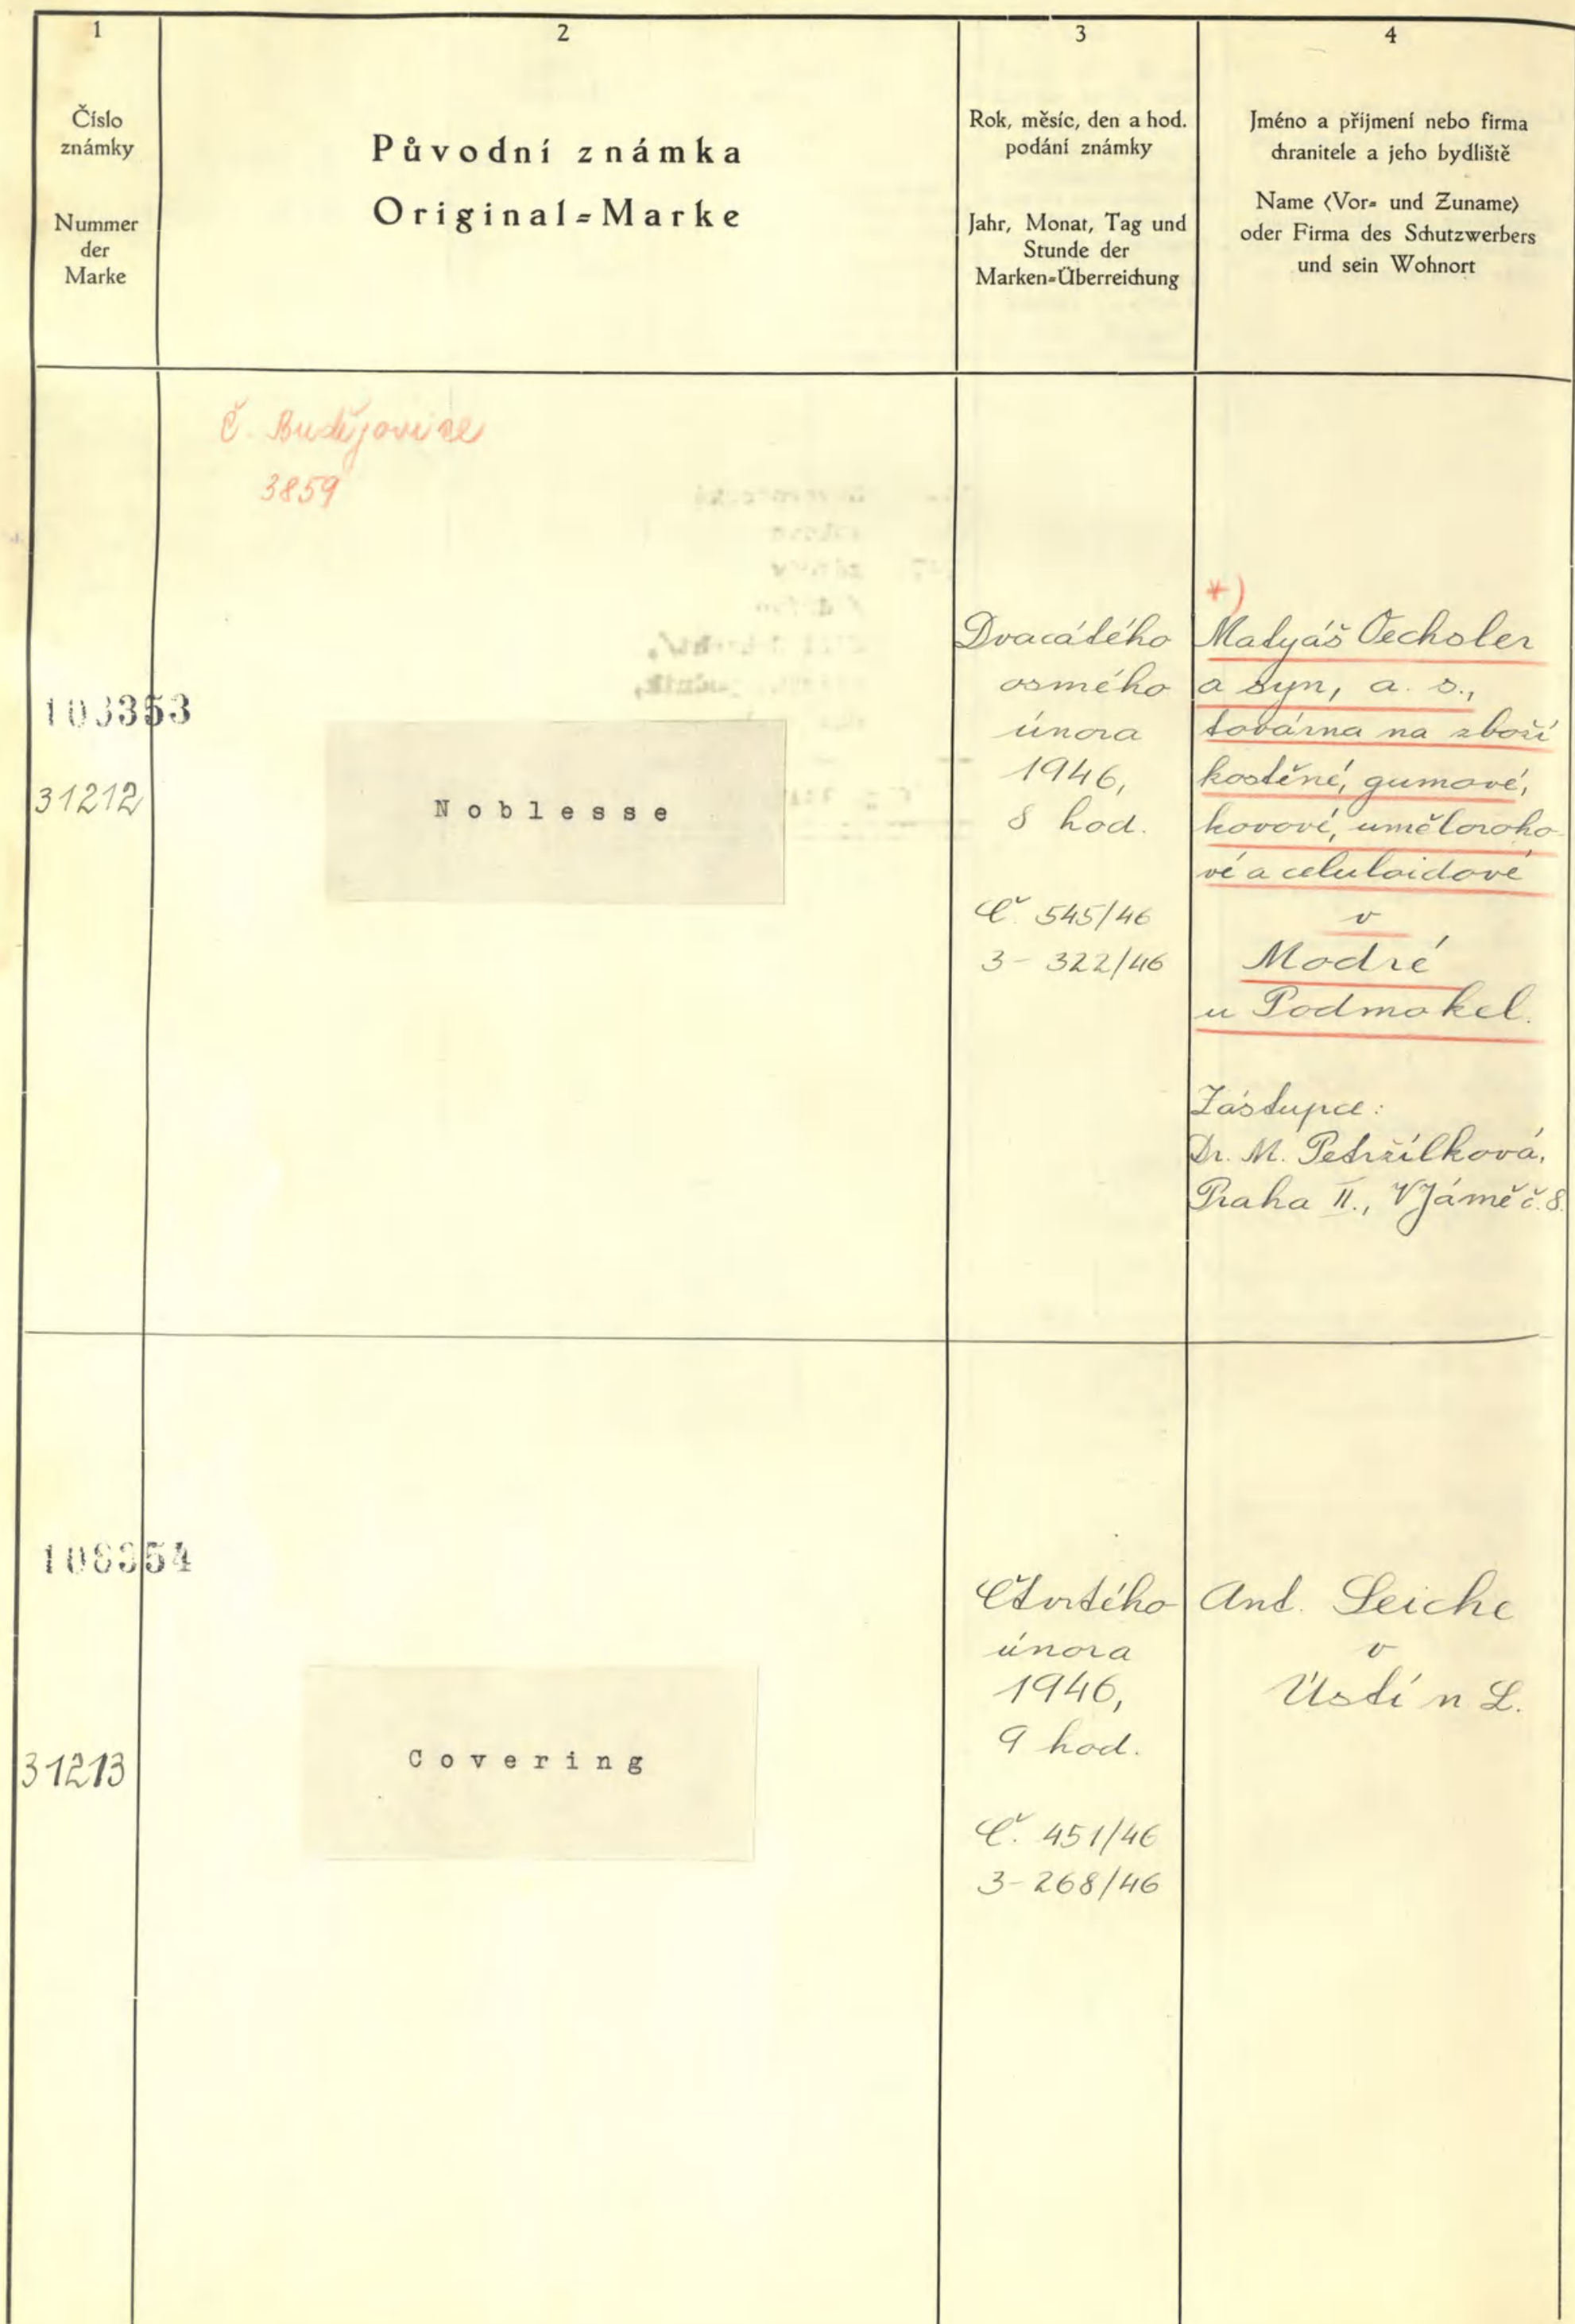 1
Číslo
známky
Nummer
der
Marke
2
Původní známka
Original=Marke
3
Rok, měsíc, den a hod.
podání známky
Jahr, Monat, Tag und
Stunde der
Marken=Überreichung
4
Jméno a příjmení nebo firma
chranitele a jeho bydliště
Name (Vor= und Zuname)
oder Firma des Schutzwerbers
und sein Wohnort
Č. Budějovice
3859
31212
Noblesse
Dvacátého
osmého
února
1946,
8 hod.
Č. 545/46
3-322/46
*)
Matyáš Oechsler
a syn, a. s.,
továrna na zboží
kostěné, gumové,
kovové, uměloroho
vé a celuloidové
v
Modré
u Podmokel.
Zástupce:
Dr. M. Petržílková,
Praha II., V Jámě č. 8.
31213
Covering
Čtvrtého
února
1946,
9 hod.
Č. 451/46
3-268/46
Ant. Leiche
v
Ústí n L.